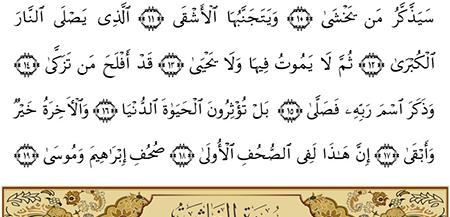 سَيَذَّكَّرُ مَن يَخْشَىٰ ﴿١٠﴾ وَيَتَجَنَّبُهَا ٱلْأَشْقَى ﴿١١﴾ ٱلَّذِى يَصْلَى ٱلنَّارَ
ٱلْكُبْرَىٰ ﴿١٢﴾ ثُمَّ لَا يَمُوتُ فِيهَا وَلَا يَحْيَىٰ ﴿١٣﴾ قَدْ أَفْلَحَ مَن تَزَكَّىٰ ﴿١٤﴾
وَذَكَرَ ٱسْمَ رَبِّهِۦ فَصَلَّىٰ ﴿١٥﴾ بَلْ تُؤْثِرُونَ ٱلْحَيَوٰةَ ٱلدُّنْيَا ﴿١٦﴾ وَٱلْأَخِرَةُ خَيْرٌ
وَأَبْقَىٰٓ ﴿١٧﴾ إِنَّ هَٰذَا لَفِى ٱلصُّحُفِ ٱلْأُولَىٰ ﴿١٨﴾ صُحُفِ إِبْرَٰهِيمَ وَمُوسَىٰ ﴿١٩﴾